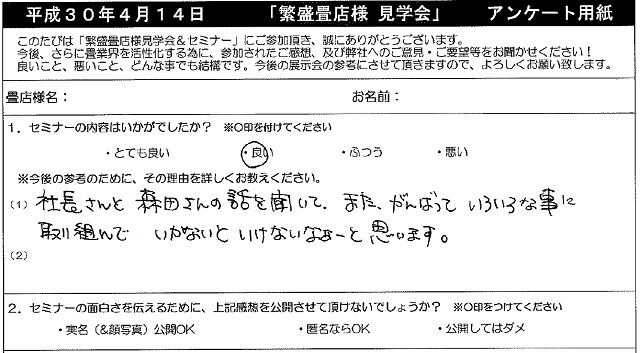 平成30年4月14日 「繁盛畳店様 見学会」 アンケート用紙
このたびは「繁盛畳店様見学会&セミナー」にご参加頂き、誠にありがとうございます。
今後、さらに畳業界を活性化する為に、参加されたご感想、及び弊社へのご意見・ご要望等をお聞かせください！
良いこと、悪いこと、どんな事でも結構です。今後の展示会の参考にさせて頂きますので、よろしくお願い致します。
畳店様名： お名前：
1．セミナーの内容はいかがでしたか？ ※〇印を付けてください
・とても良い ・良い ・ふつう ・悪い
※今後の参考のために、その理由を詳しくお教えください。
(1) 社長さんと 森田さんの話を聞いて、また、がんばって いろいろな事に
取り組んで いかないと いけないなぁーと 思います。
(2)
2．セミナーの面白さを伝えるために、上記感想を公開させて頂けないでしょうか？ ※〇印をつけてください
・実名（&顔写真）公開OK ・匿名ならOK ・公開してはダメ